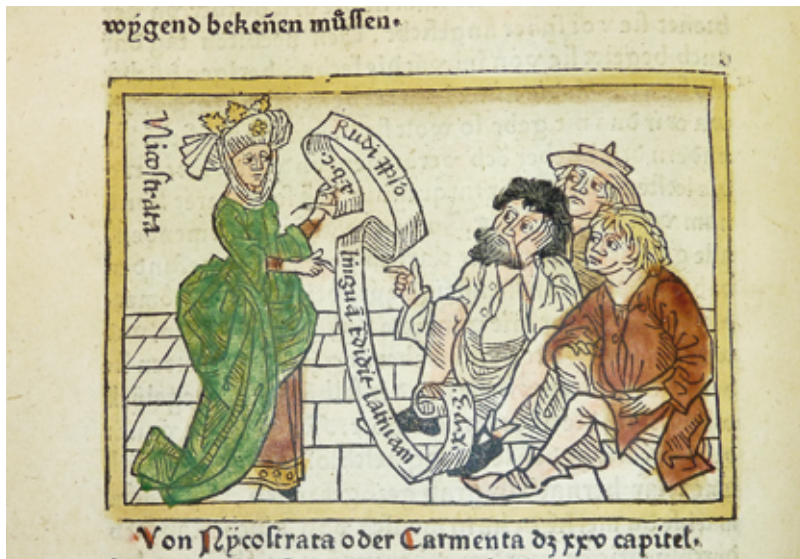 wÿgend bekeñen můſſen.
Nicoſtrata
Rudi
a.b.c.
linguā edidit latinam
x.y.z.
Von Nÿcoſtrata oder Carmenta dz xxv capitel.